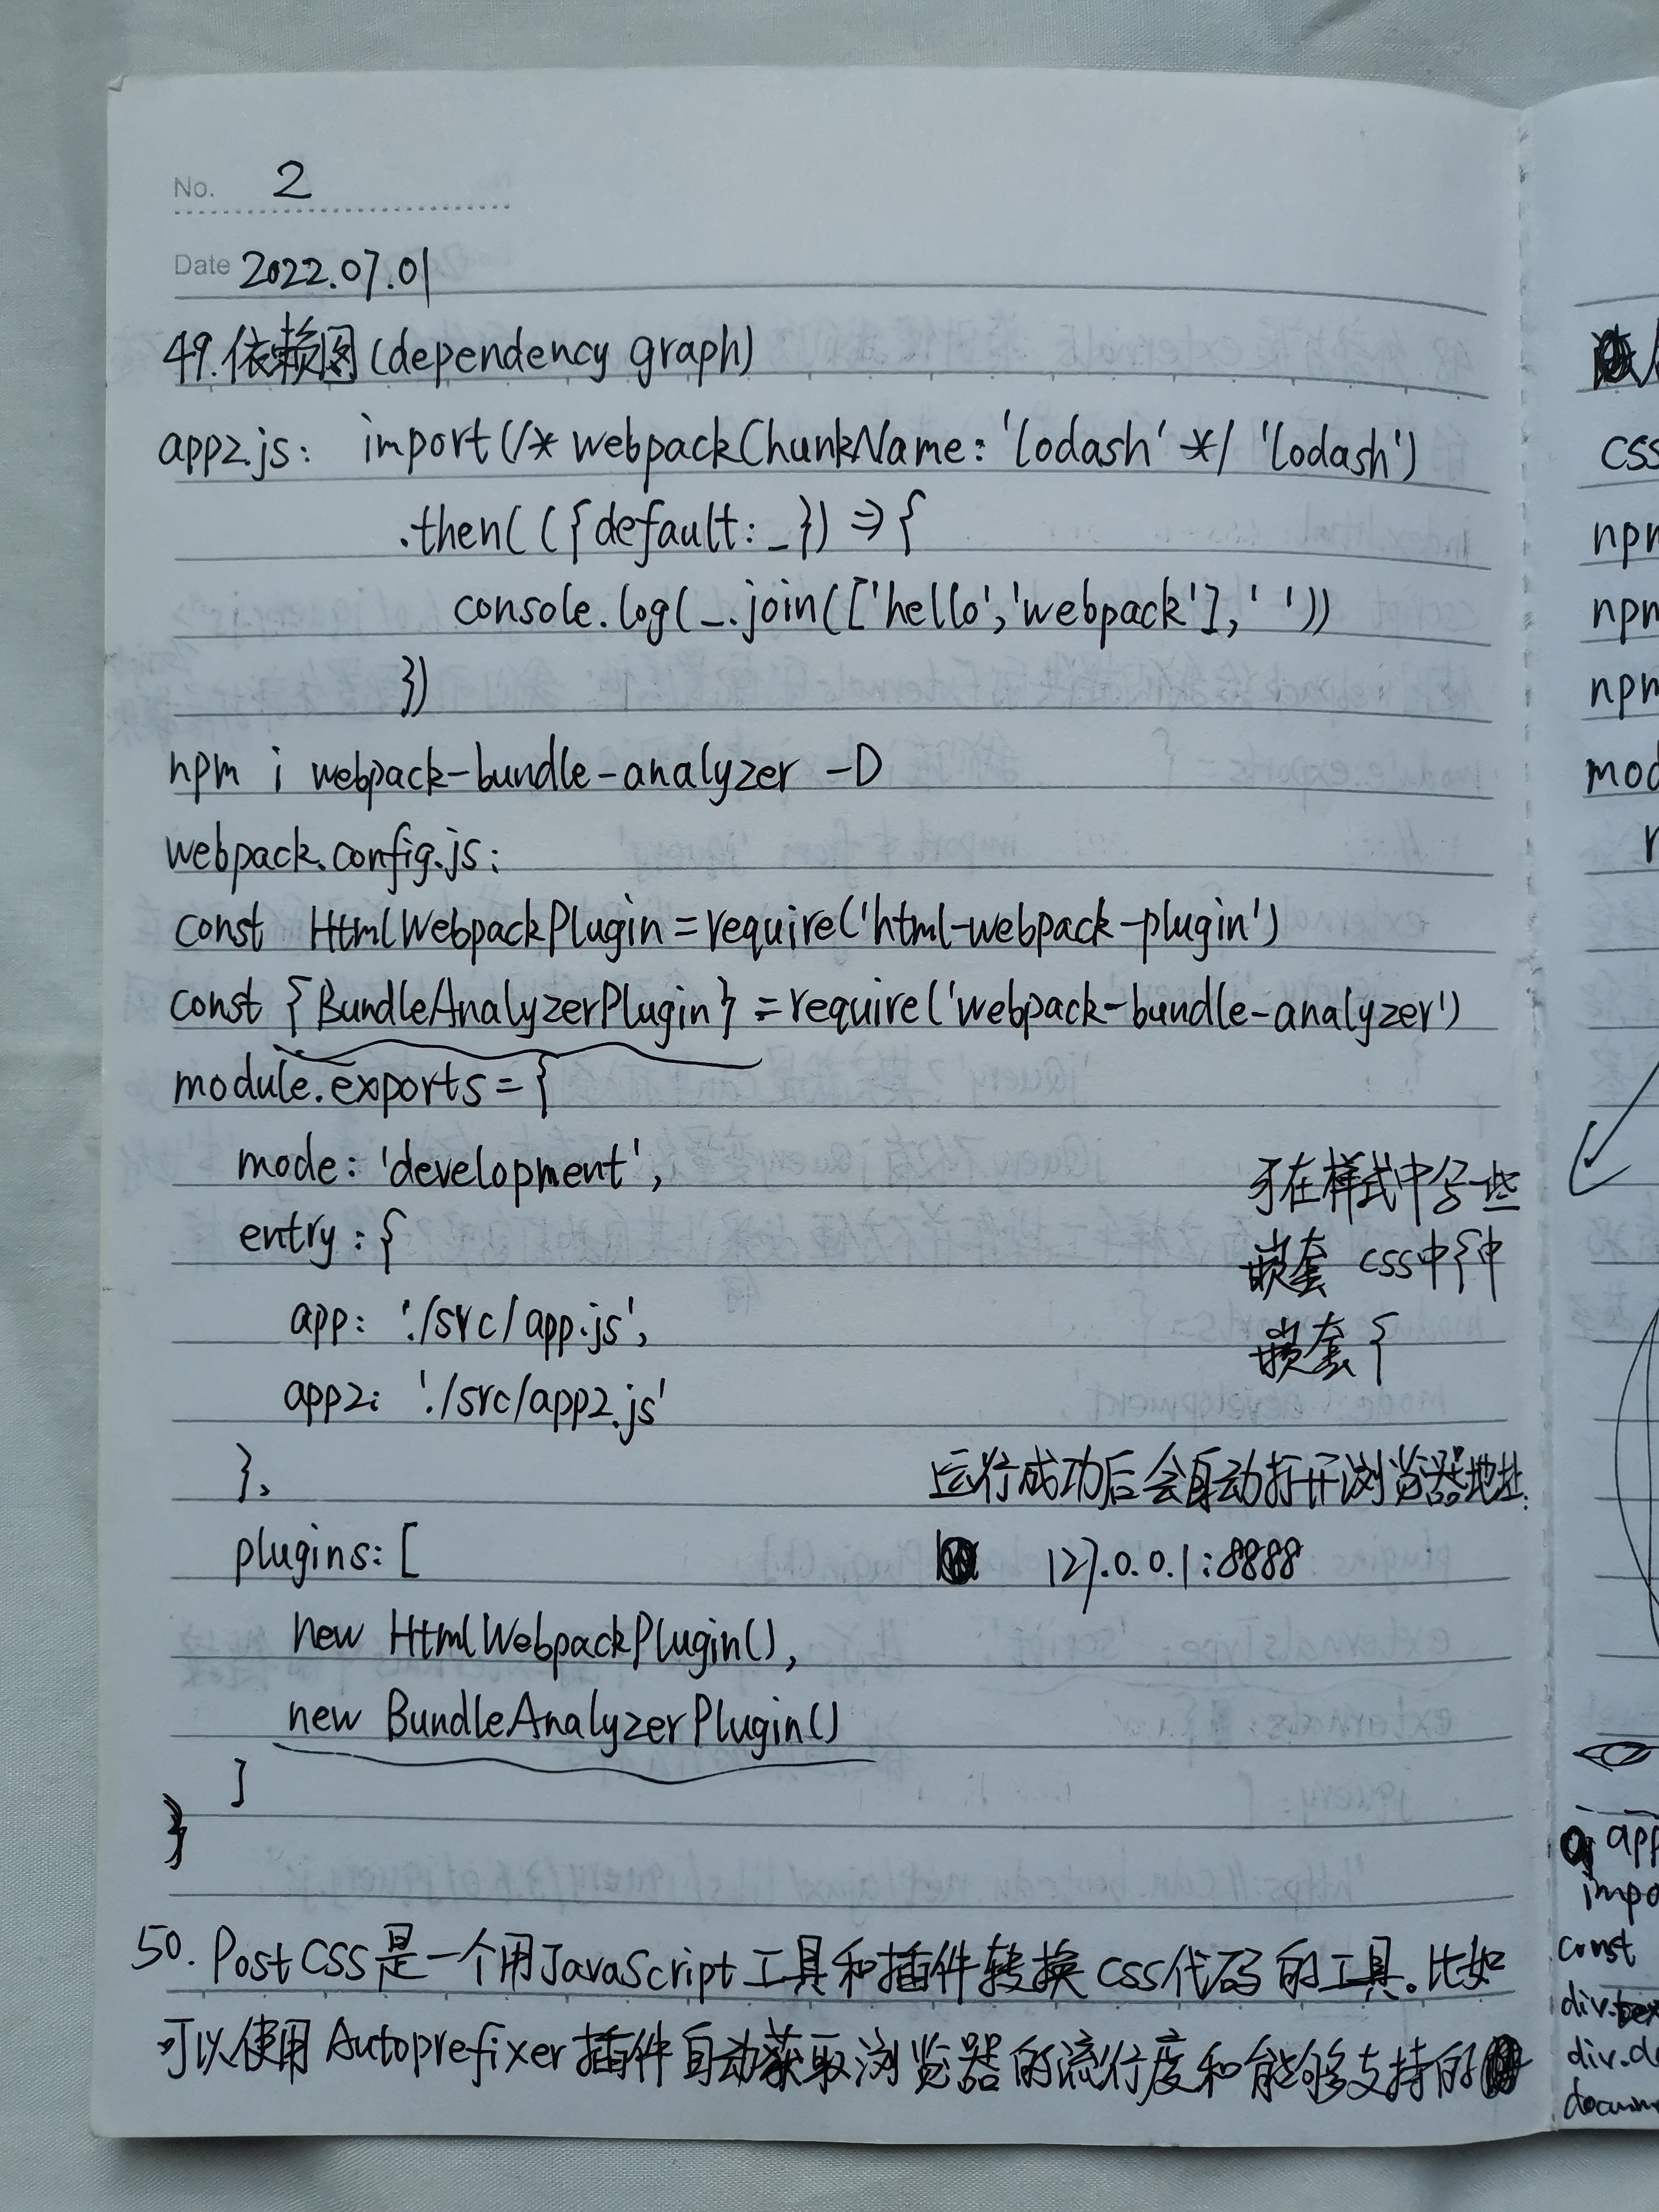 No. 2
Date 2022.07.01
49.依赖图(dependency graph)
app2.js: import(/* webpackChunkName: 'lodash' */ 'lodash')
.then(({default: _}) => {
console.log(_.join(['hello','webpack'],' '))
})
npm i webpack-bundle-analyzer -D
webpack.config.js:
const HtmlWebpackPlugin = require('html-webpack-plugin')
const {BundleAnalyzerPlugin} = require('webpack-bundle-analyzer')
module.exports = {
mode: 'development',
entry: {
app: './src/app.js',
app2: './src/app2.js'
},
plugins: [
new HtmlWebpackPlugin(),
new BundleAnalyzerPlugin()
]
}
在样式中写一些
嵌套 css中{中
嵌套{
运行成功后会自动打开浏览器地址:
127.0.0.1:8888
50. PostCSS是一个用JavaScript工具和插件转换CSS代码的工具。比如
可以使用Autoprefixer插件自动获取浏览器的流行度和能够支持的
css
npm
npm
npm
mod
r
app
impo
const
div.
div.d
docum